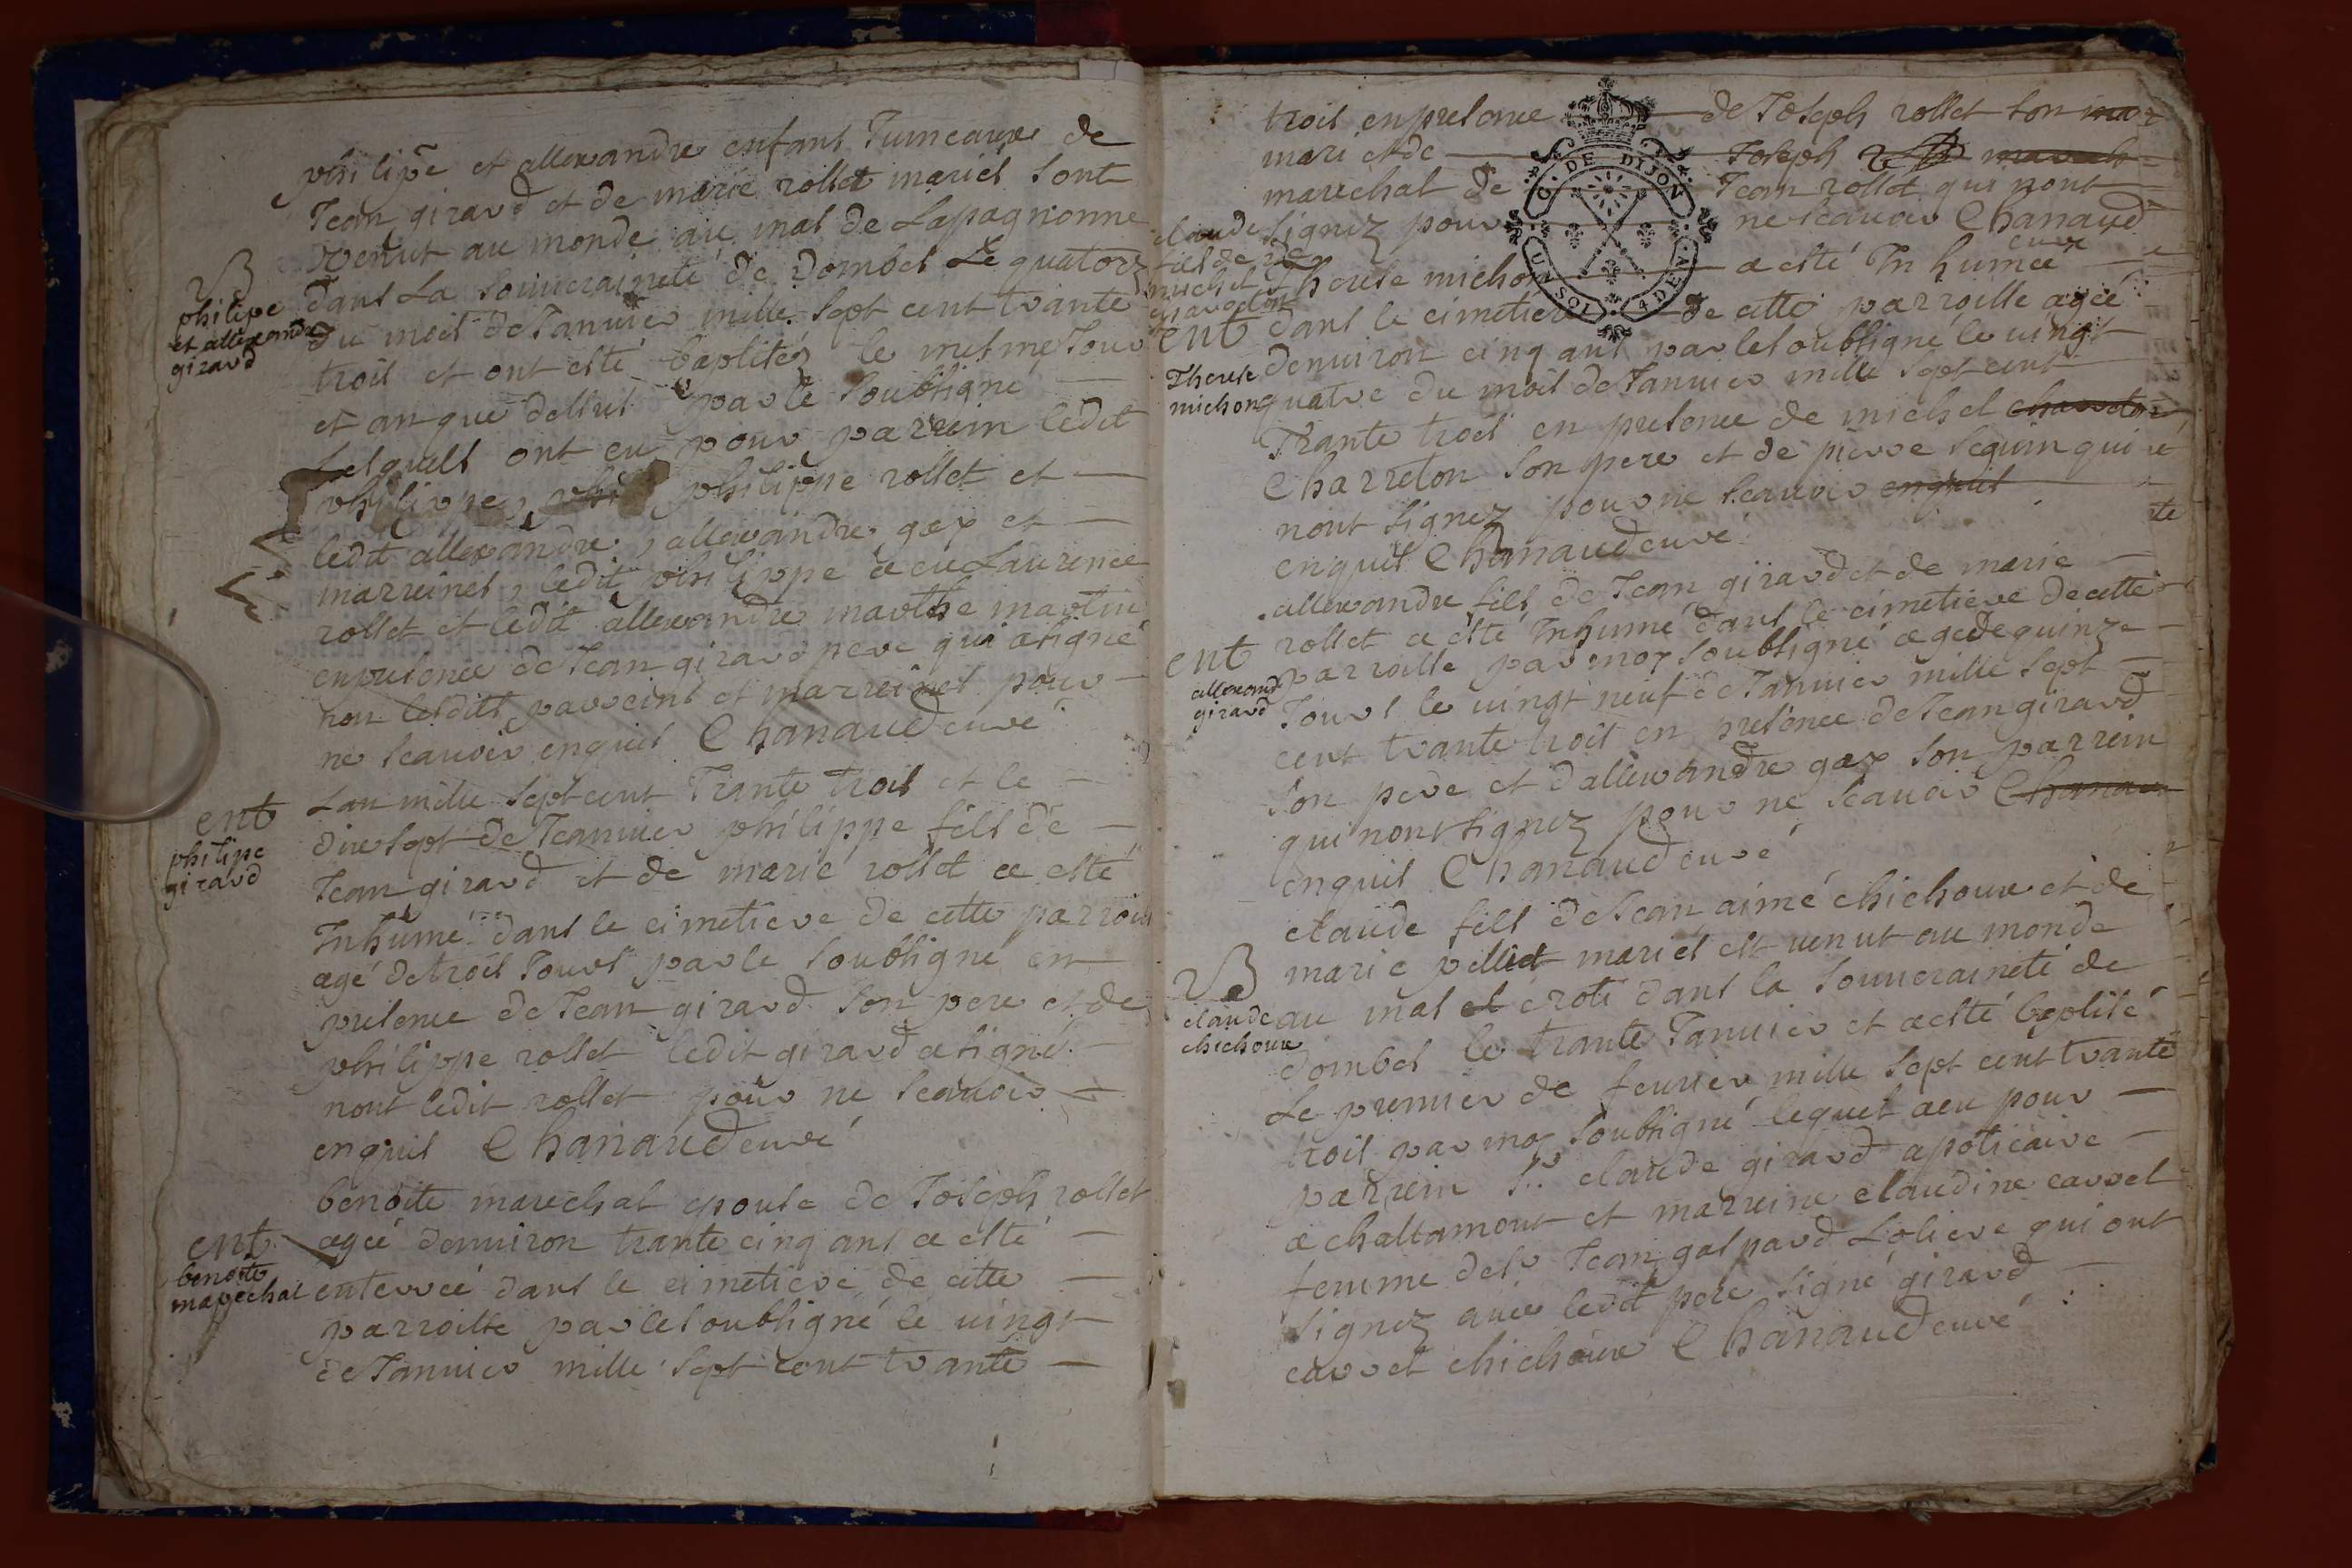 philipe et allexandre enfans Jumeaux de
Jean girard et de marie rollet mariés sont
venut au monde au mas de Lapagnonne
B
philipe
et allexandre
girard
dans La souveraineté de Dombes Le quatorz
du mois de Janvier mille sept cent trante
trois et ont esté baptisez le mesme Jour
et an que dessus par le soubsigné
Lesquels ont eu pour parrein ledit
philippe, philippe rollet et
ledit allexandre, allexandre gay et
marreines, ledit philippe a eu Laurence
rollet et ledit allexandre marthe martin
en presence de Jean girard pere qui a signé
non lesdits parreins et marreines pour
ne scavoir enquis Chanaud curé
ent
philipe
girard
Lan mille sept cent Trante trois et le
dixsept de Jeanvier philippe fils de
Jean girard et de marie rollet a esté
Inhumé dans le cimetiere de cette parroiss
agé de trois Jours par le soubsigné en
presence de Jean girard son pere et de
philippe rollet ledit girard a signé
nont ledit rollet pour ne scavoir
enquis Chanaud curé
benoite marechal epouse de Joseph rollet
ent
benoite
marechal
ageé denviron trante cinq ans a esté
enterreé dans le cimetiere de cette
parroisse par le soubsigné le vingt
de Janvier mille sept cent trante
trois en presence de Joseph rollet son
mari et de Joseph
marechal de Jean rollet qui nont
signez pour ne scavoir Chanaud
curé
claude
fils de
michel
charreton
Therese michon a esté Inhumeé
ent
Therese
michon
dans le cimetiere de cette parroisse ageé
denviron cinq ans par le soubsigné le vingt
quatre du mois de Janvier mille sept cent
Trante trois en presence de michel charreton
Charreton son pere et de pierre seguin qui
nont signez pour ne scavoir enquis
enquis Chanaud curé
allexandre fils de Jean girard et de marie
ent
allexand
girard
rollet a esté Inhumé dans le cimetiere de cette
parroisse par moy soubsigné age de quinze
Jours le vingt neuf de Janvier mille sept
cent trante trois en presence de Jean girard
son pere et dallexandre gay son parrein
qui nont signez pour ne scavoir Chanau
enquis Chanaud curé
claude fils de Jean aimé chichoux et de
B
claude
chichoux
marie pellet mariés est venut au monde
au mas et croti dans la souveraineté de
dombes le trante Janvier et a esté baptisé
Le premier de fevrier mille sept cent trante
trois par moy soubsigné lequel a eu pour
parrein Sr. claude girard apoticaire
a chattamont et marreine claudine carret
femme de sr Jean gaspard Loliere qui ont
signez avec ledit pere signé girard
carret chichoux Chanaud curé
G. DE DIJON
UN SOL 4 DEN